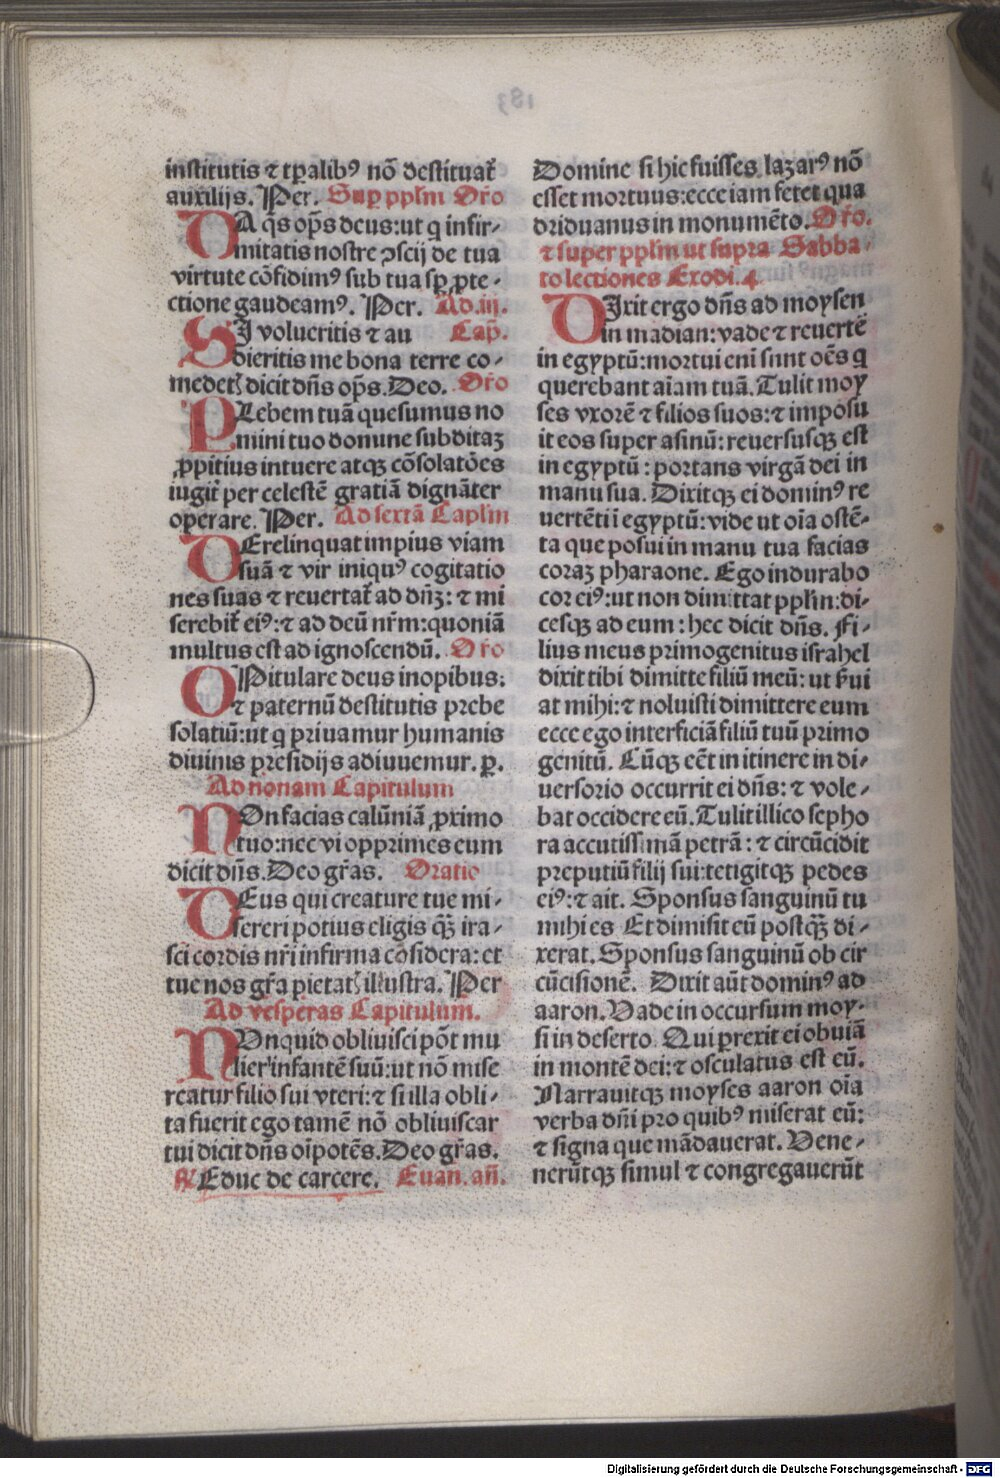 institutis ⁊ tꝑalibꝰ nō destituat᷑
auxilijs. Per. Suꝑ pplm Oro
DA q̄s oꝑs deus: ut q infir⸗
mitatis nostre ꝯscij de tua
virtute cōfidimꝰ sub tua sꝑ ꝓte⸗
ctione gaudeamꝰ. Per. Ad .iij.
SI volueritis ⁊ au Cap̄.
dieritis me bona terre co⸗
medetꝭ dicit dn̄s oꝑs. Deo. Oro
PLebem tuā quesumus no
mini tuo domine subditaꝫ
ꝓpitius intuere atqꝫ cōsolatōes
iugit᷑ per celestē gratiā dignāter
operare. Per. Ad sextā Caplm
DErelinquat impius viam
suā ⁊ vir iniquꝰ cogitatio
nes suas ⁊ reuertat᷑ ad dn̄ꝫ: ⁊ mi
serebit᷑ eiꝰ: ⁊ ad deū nr̄m: quoniā
multus est ad ignoscendū. Oro
OPitulare deus inopibus:
⁊ paternū destitutis prebe
solatiū: ut q priuamur humanis
diuinis presidijs adiuuemur. ꝑ.
Ad nonam Capitulum
NOn facias calūniā ꝓximo
tuo: nec vi opprimes eum
dicit dn̄s. Deo gr̄as. Oratio
DEus qui creature tue mi⸗
sereri potius eligis qꝫ̄ ira⸗
sci cordis nr̄i infirma cōsidera: et
tue nos gr̄a pietatꝭ illustra. Per
Ad vesperas Capitulum.
NUnquid obliuisci pōt mu
lier infantē suū: ut nō mise
reatur filio sui vteri: ⁊ si illa obli⸗
ta fuerit ego tamē nō obliuiscar
tui dicit dn̄s oīpotēs. Deo gr̄as.
℟ Educ de carcere. Euan. an̄.
Domine si hic fuisses lazarꝰ nō
esset mortuus: ecce iam fetet qua
driduanus in monumēto. Oro.
⁊ super pplm ut supra Sabba⸗
to lectiones Exodi. 4
DIxit ergo dn̄s ad moysen
in madian: vade ⁊ reuertē
in egyptū: mortui enī sunt oēs q
querebant aīam tuā. Tulit moy
ses vxorē ⁊ filios suos: ⁊ imposu
it eos super asinū: reuersusqꝫ est
in egyptū: portans virgā dei in
manu sua. Dixitqꝫ ei dominꝰ re
uertēti ī egyptū: vide ut oīa ostē⸗
ta que posui in manu tua facias
coraꝫ pharaone. Ego indurabo
cor eiꝰ: ut non dimittat pplm: di⸗
cesqꝫ ad eum: hec dicit dn̄s. Fi⸗
lius meus primogenitus israhel
dixi tibi dimitte filiū meū: ut ẜui
at mihi: ⁊ noluisti dimittere eum
ecce ego interficiā filiū tuū primo
genitū. Cūqꝫ eēt in itinere in di⸗
uersorio occurrit ei dn̄s: ⁊ vole⸗
bat occidere eū. Tulit illico sepho
ra accutissimā petrā: ⁊ circūcidit
preputiū filij sui: tetigitqꝫ pedes
eiꝰ: ⁊ ait. Sponsus sanguinū tu
mihi es Et dimisit eū postqꝫ̄ di⸗
xerat. Sponsus sanguinū ob cir
cūcisionē. Dixit aūt dominꝰ ad
aaron. Uade in occursum moy⸗
si in deserto. Qui prexit ei obuiā
in montē dei: ⁊ osculatus est eū.
Narrauitqꝫ moyses aaron oīa
verba dn̄i pro quibꝰ miserat eū:
⁊ signa que mādauerat. Uene⸗
nerūtqꝫ simul ⁊ congregauerūt
Digitalisierung gefördert durch die Deutsche Forschungsgemeinschaft - DFG